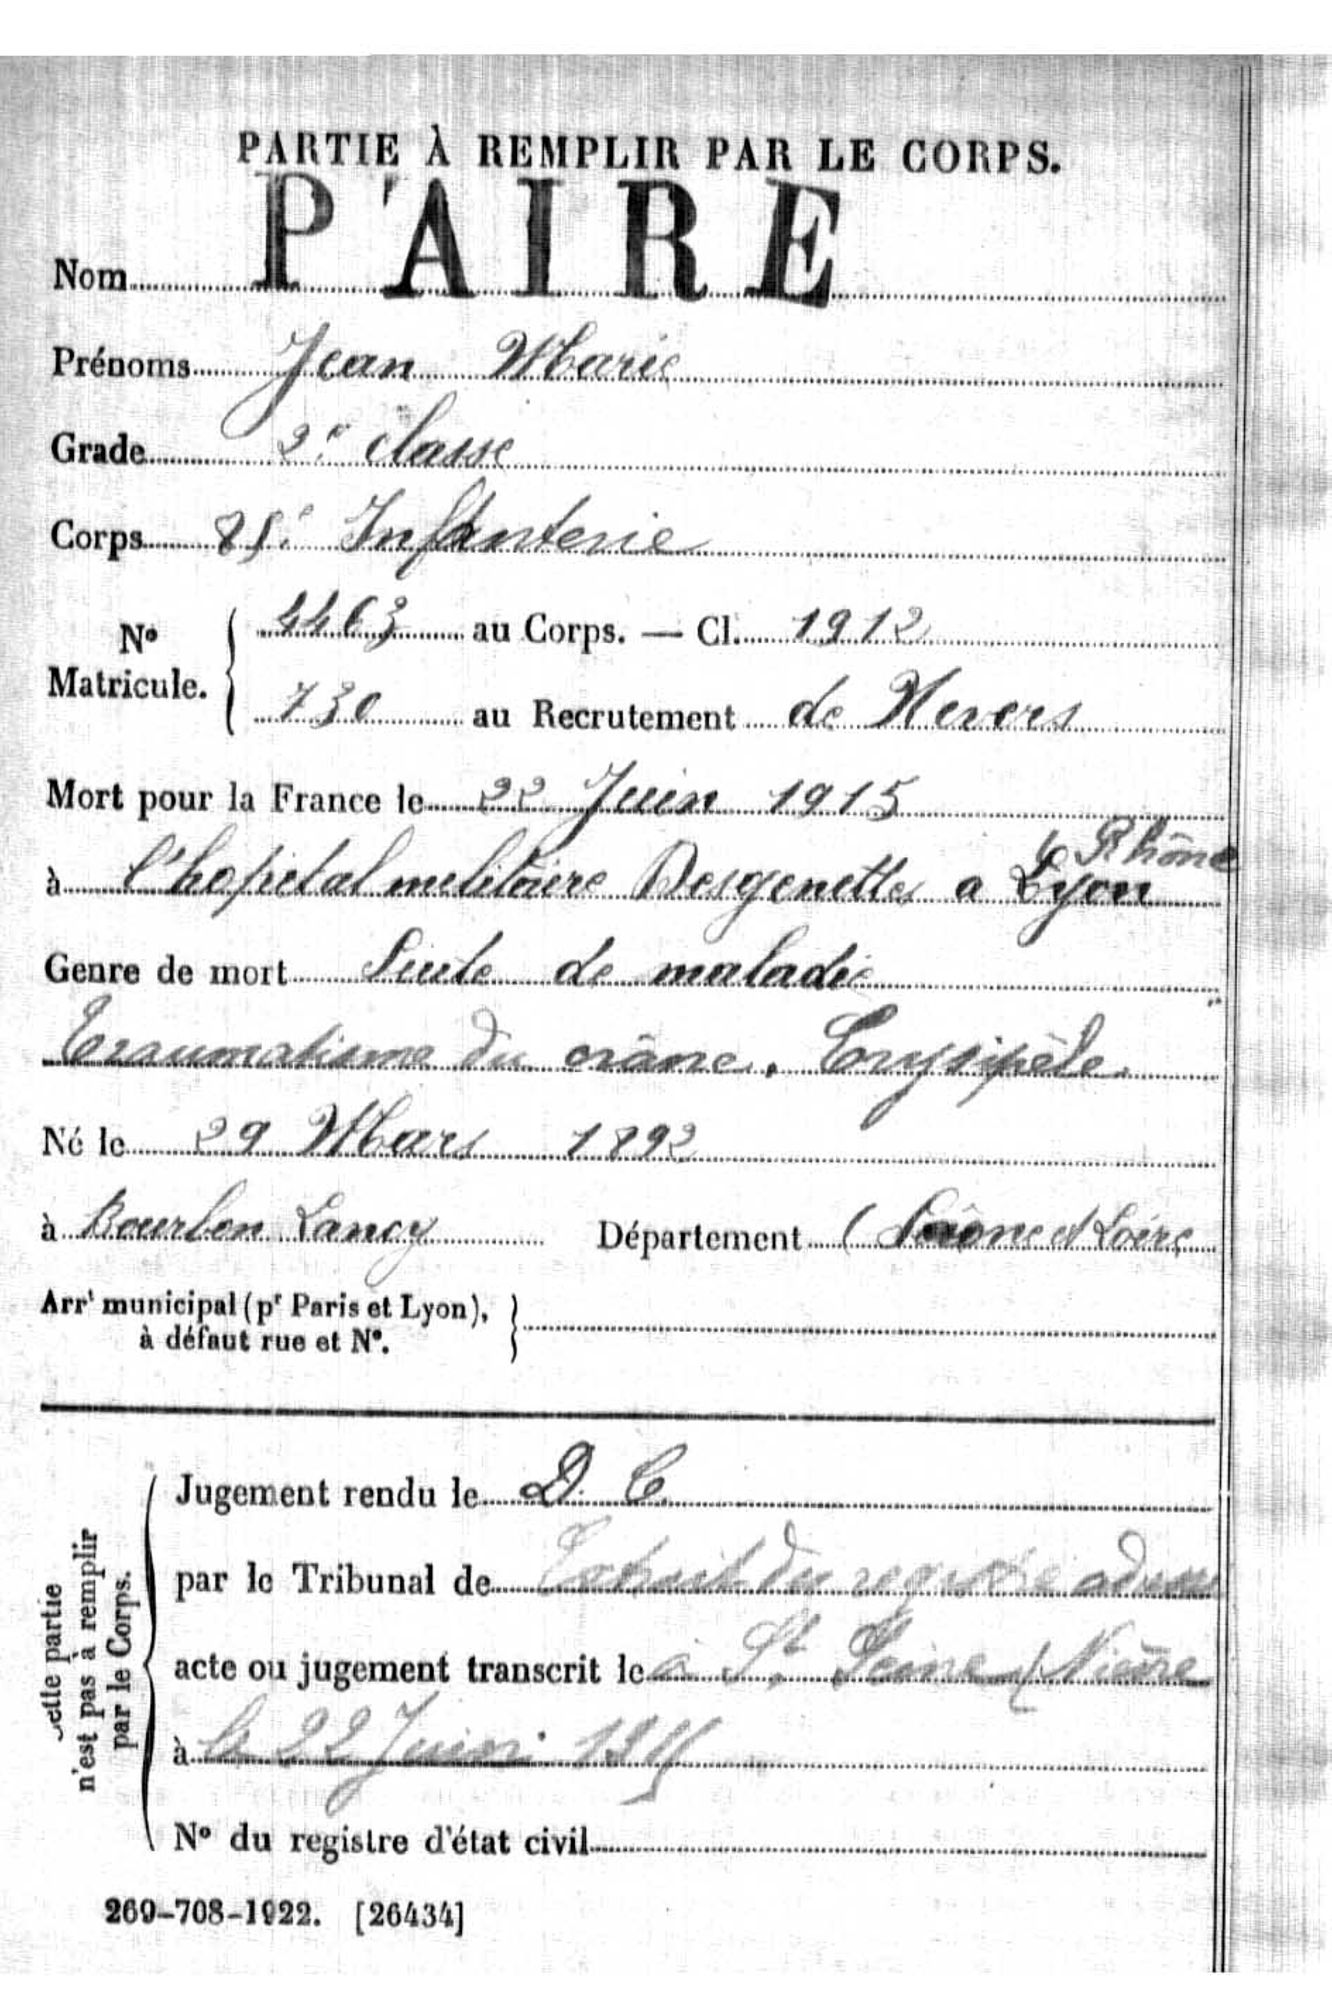 PARTIE À REMPLIR PAR LE CORPS.
Nom PAIRE
Prénoms Jean Marie
Grade 2e classe
Corps 85e Infanterie
No Matricule. 4463 au Corps. — Cl. 1912
730 au Recrutement de Nevers
Mort pour la France le 22 Juin 1915
à l'hopital militaire Desgenettes a Lyon Rhône
Genre de mort Suite de maladie
Traumatisme du crâne. Erysipèle
Né le 29 Mars 1892
à Bourbon Lancy Département (Saône et Loire
Arrt municipal (pr Paris et Lyon),
à défaut rue et No.
Cette partie
n'est pas à remplir
par le Corps.
Jugement rendu le D. C.
par le Tribunal de Extrait du registre
acte ou jugement transcrit le à St Seine (Nièvre
à le 22 Juin 1915
No du registre d'état civil
269-708-1922. [26434]